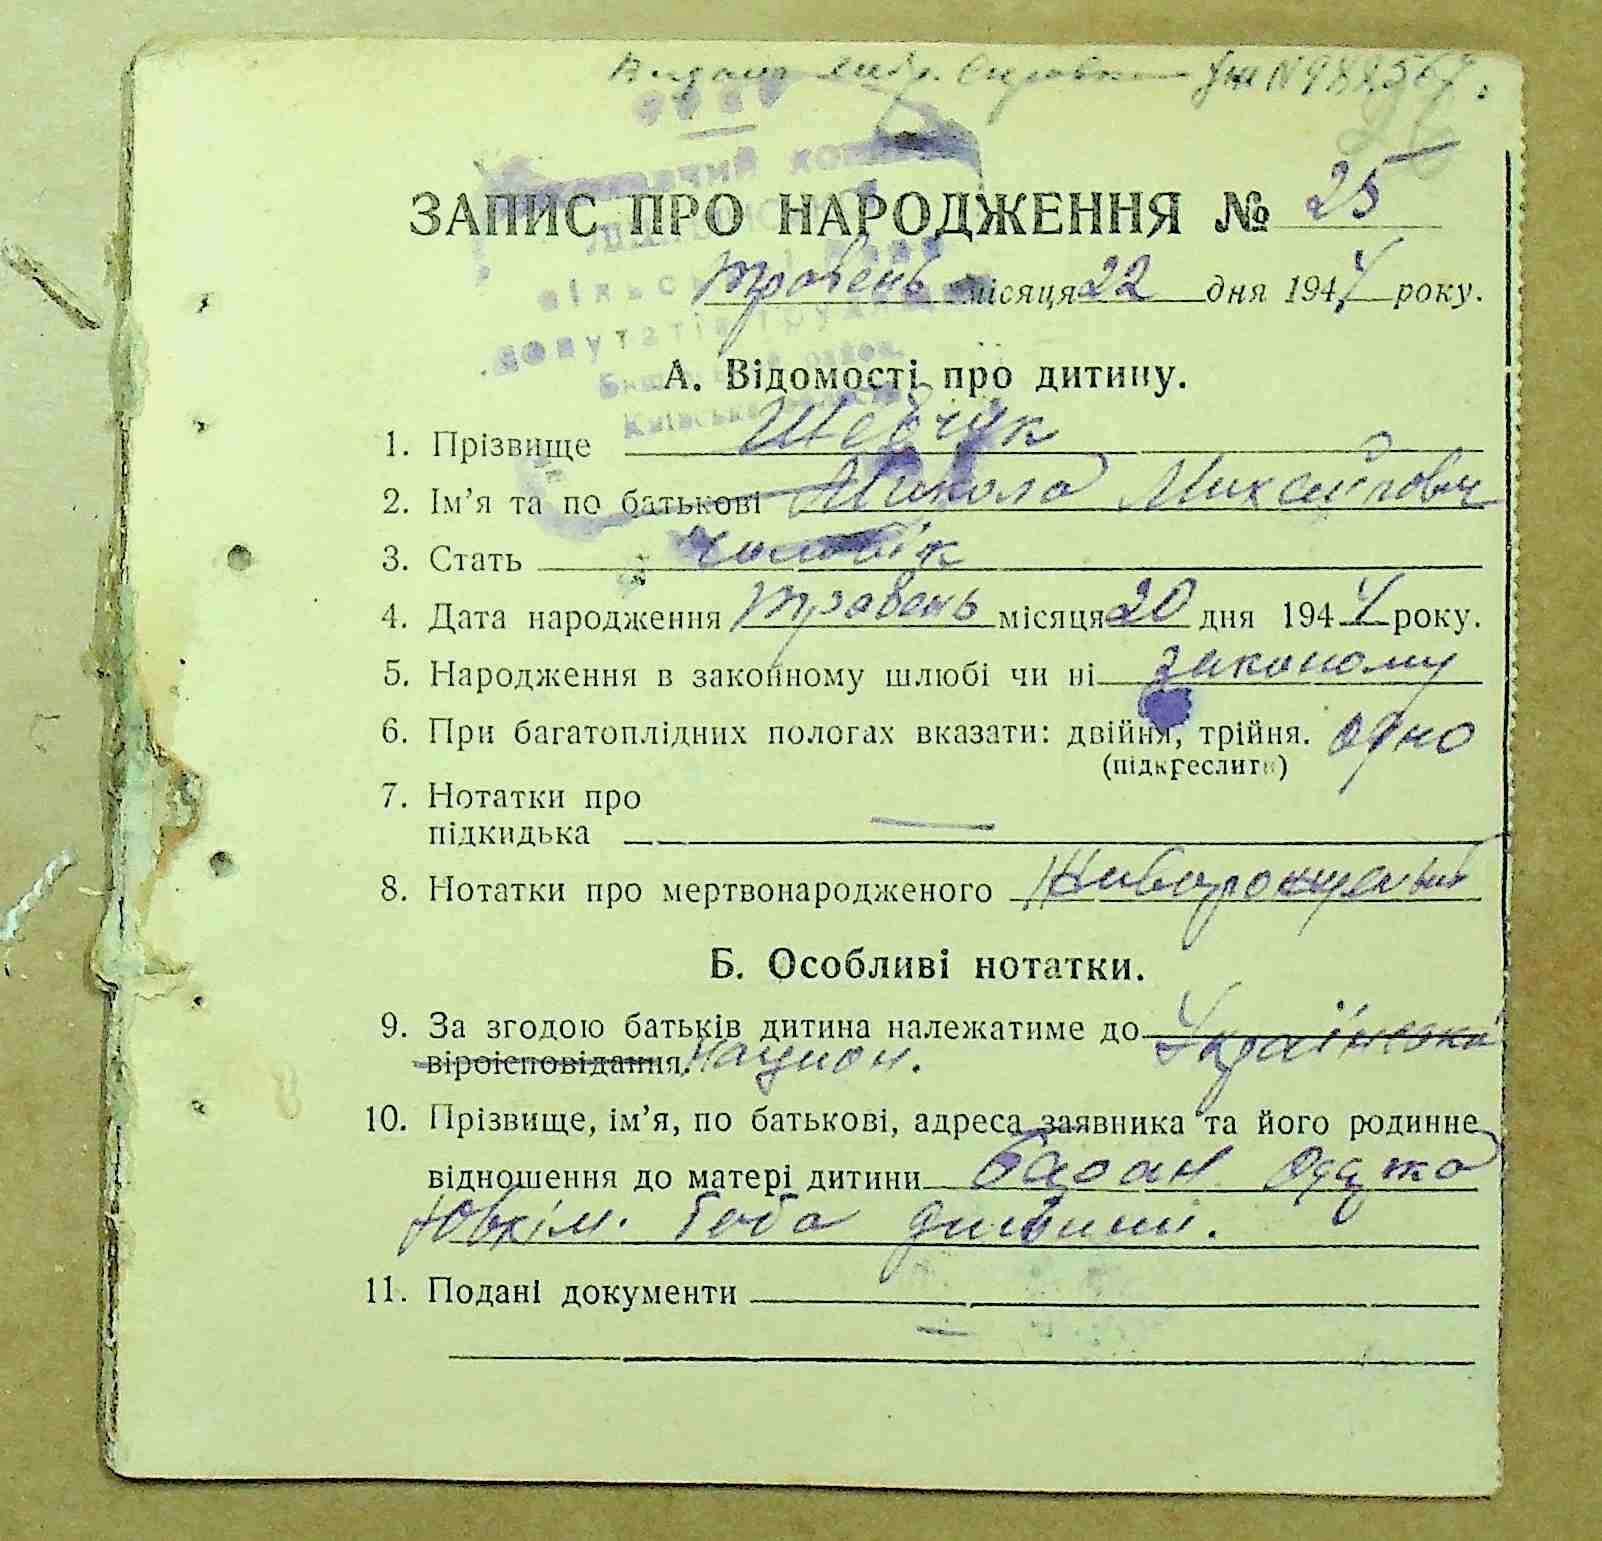 Видано УЖ N 982567.
25
ЗАПИС ПРО НАРОДЖЕННЯ № 25
травень місяця 22 дня 1944 року.
сільської ради
депутатів трудящих
А. Відомості про дитину.
1. Прізвище Шевчук
2. Ім’я та по батькові Микола Михайлович
3. Стать чоловік
4. Дата народження травень місяця 20 дня 1944 року.
5. Народження в законному шлюбі чи ні законому
6. При багатоплідних пологах вказати: двійня, трійня. одно
(підкреслити)
7. Нотатки про
підкидька —
8. Нотатки про мертвонародженого Живорожденый
Б. Особливі нотатки.
9. За згодою батьків дитина належатиме до Українскі
віроісповідання. национ.
10. Прізвище, ім’я, по батькові, адреса заявника та його родинне
відношення до матері дитини
Юхім. баба
11. Подані документи
—